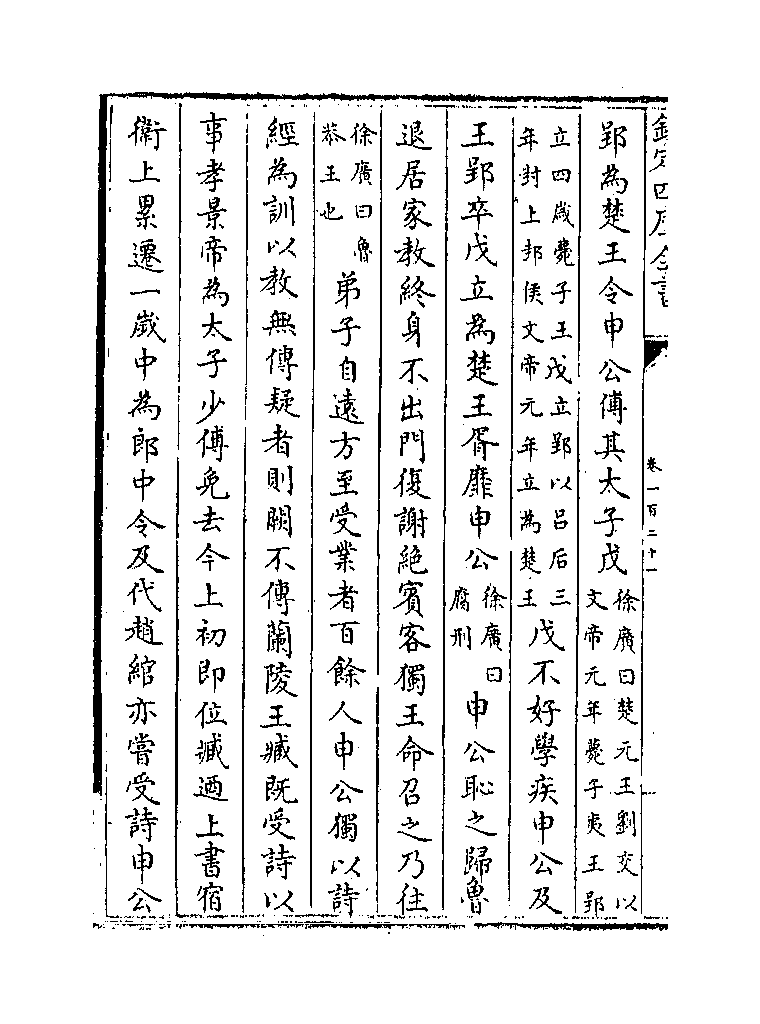 欽定四庫全書
卷一百二十一
郢為楚王令申公傅其太子戊
徐廣曰楚元王劉交以
文帝元年薨子夷王郢
立四歲薨子王戊立郢以吕后三
年封上邦侯文帝元年立為楚王
戊不好學疾申公及
王郢卒戊立為楚王胥靡申公
徐廣曰
腐刑
申公恥之歸魯
退居家教終身不出門復謝絶賔客獨王命召之乃往
徐廣曰魯
恭王也
弟子自遠方至受業者百餘人申公獨以詩
經為訓以教無傳疑者則闕不傳蘭陵王臧既受詩以
事孝景帝為太子少傅免去今上初即位臧迺上書宿
衛上累遷一歲中為郎中令及代趙綰亦嘗受詩申公